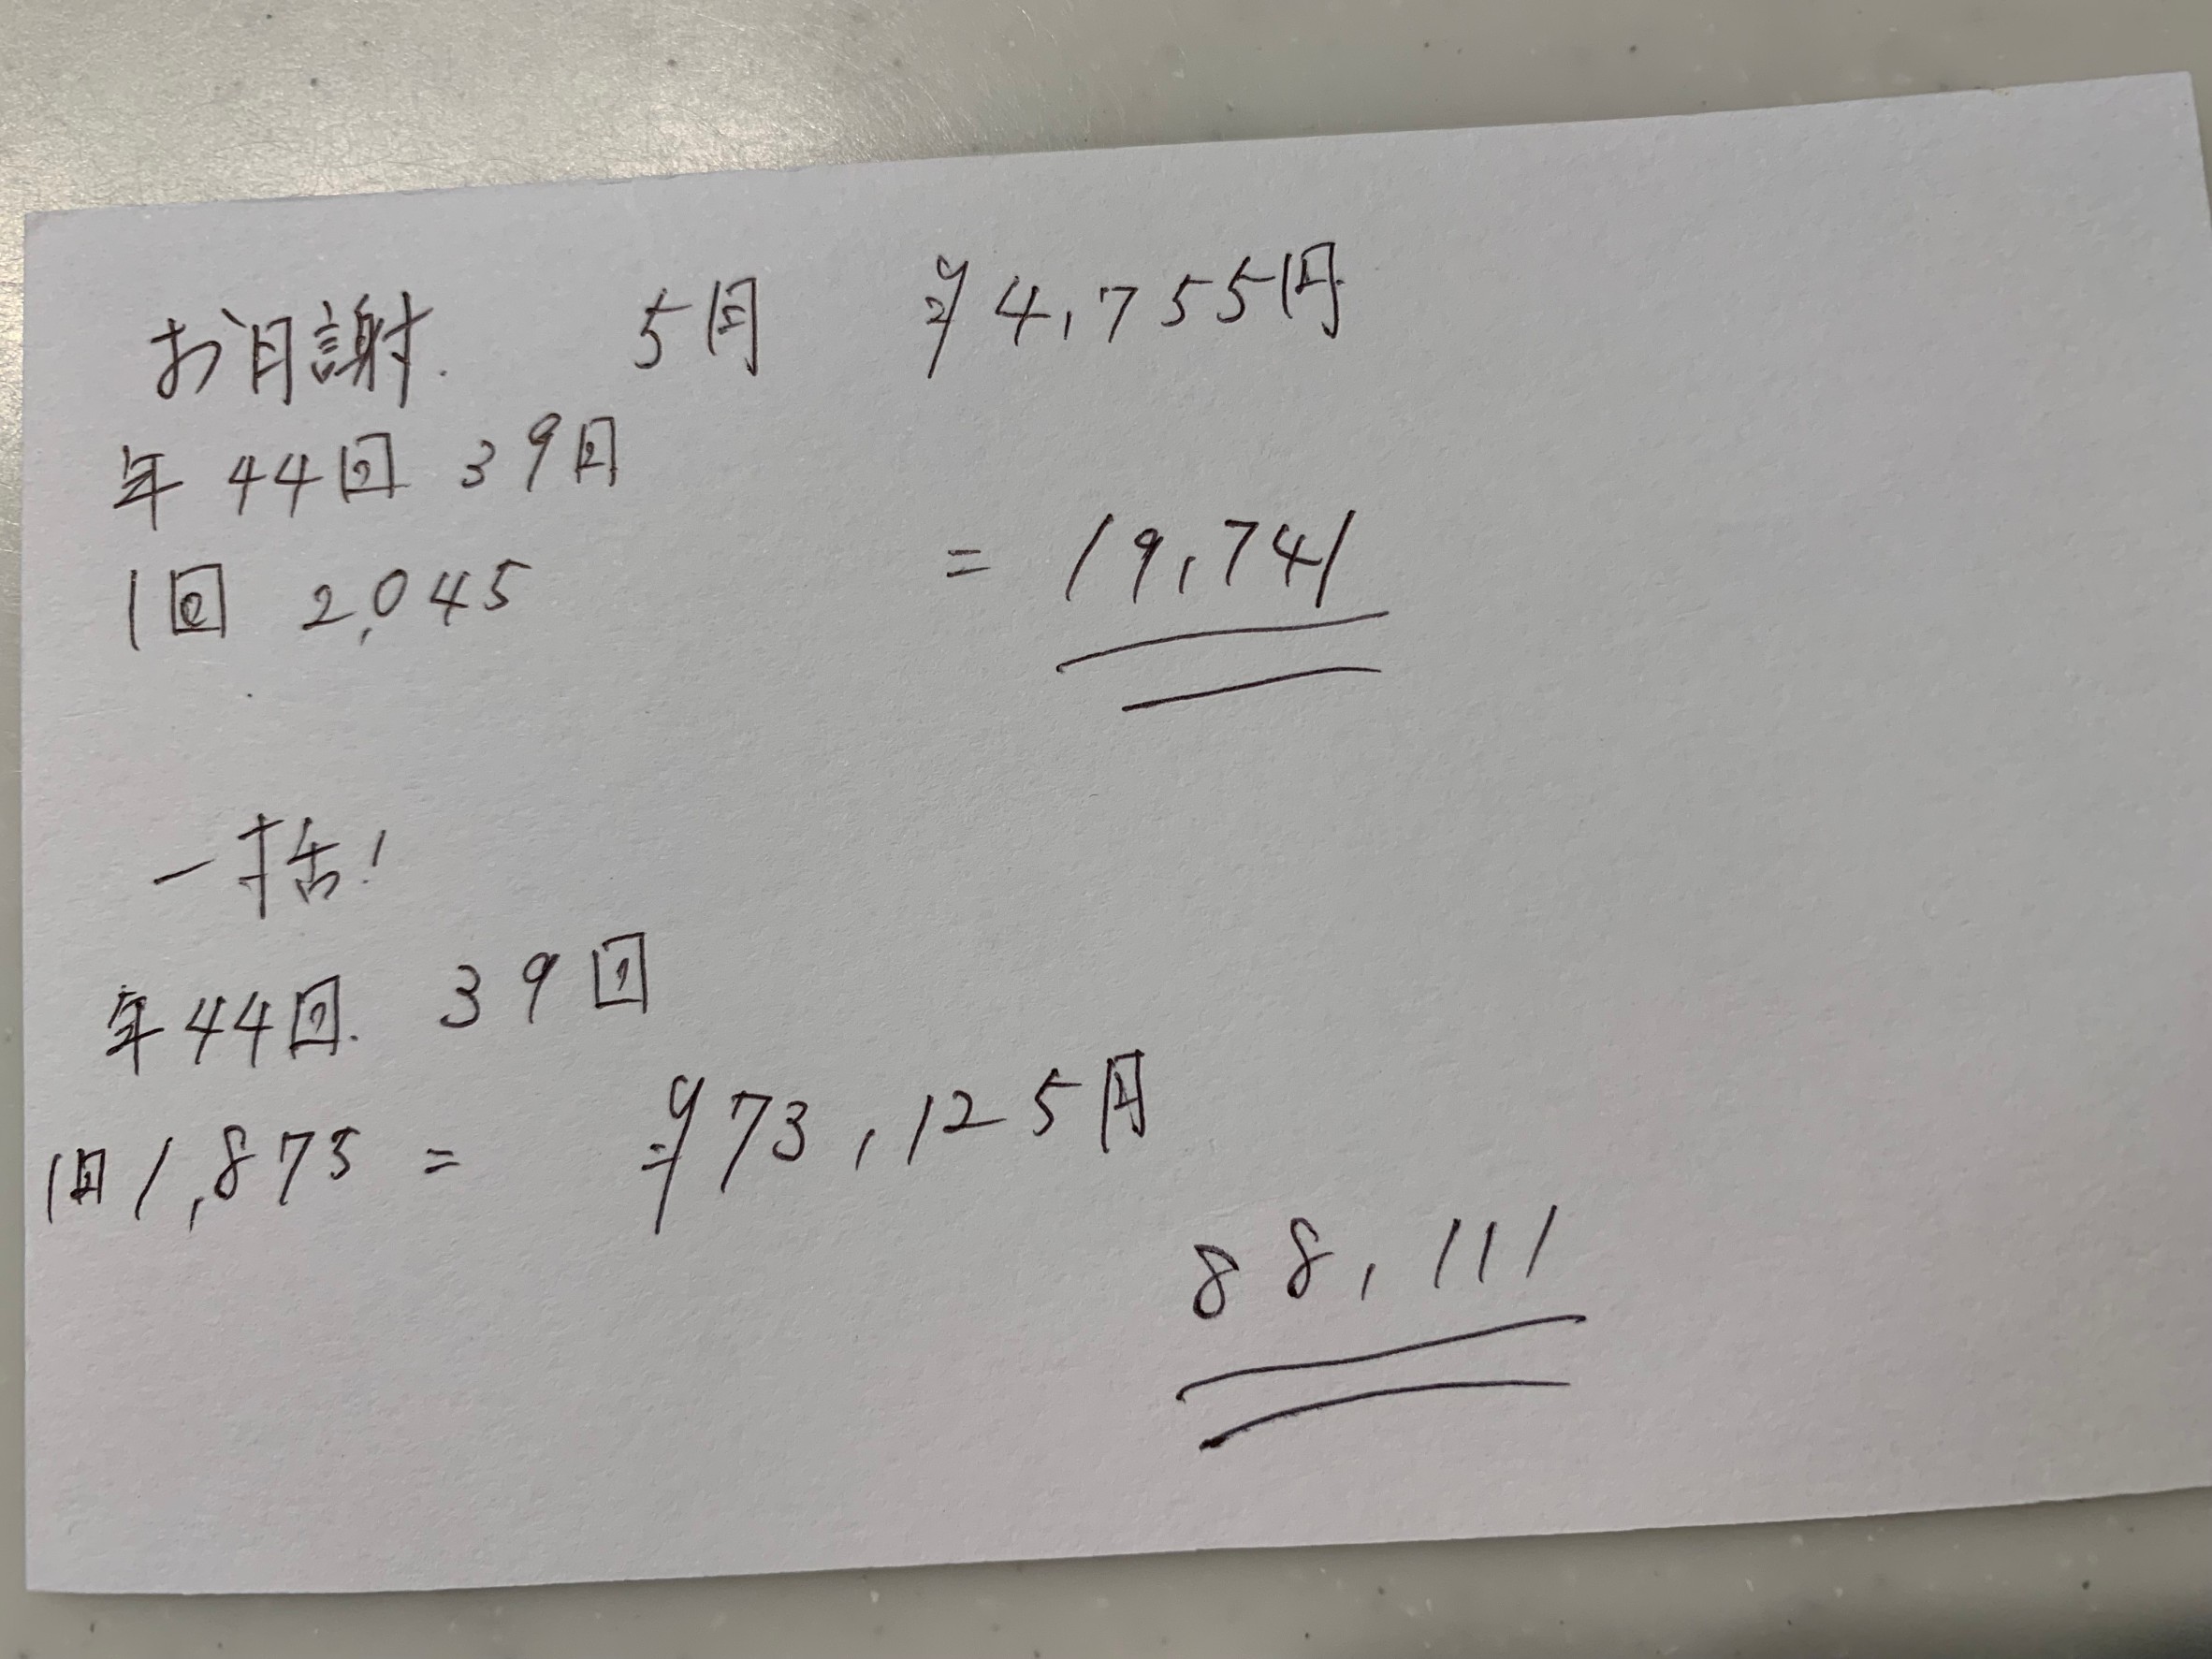 お月謝. 5回 ¥4,755円
年 44回 39回
1回 2,045
= 19,741
一括!
年44回. 39回
1回 1,875 = ¥73,125円
88,111